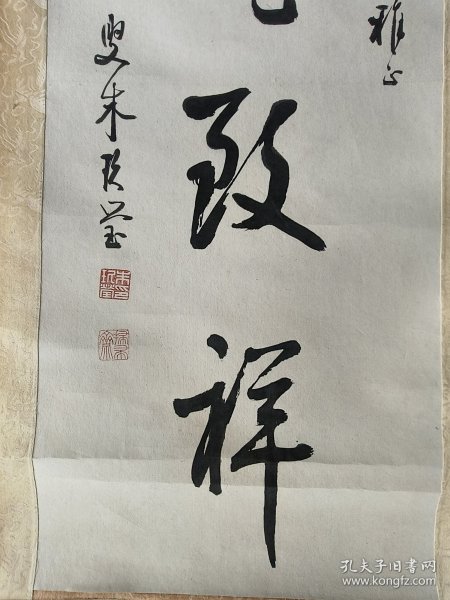 雅正
致祥
叟朱玖瑩
孔夫子旧书网
www.kongfz.com